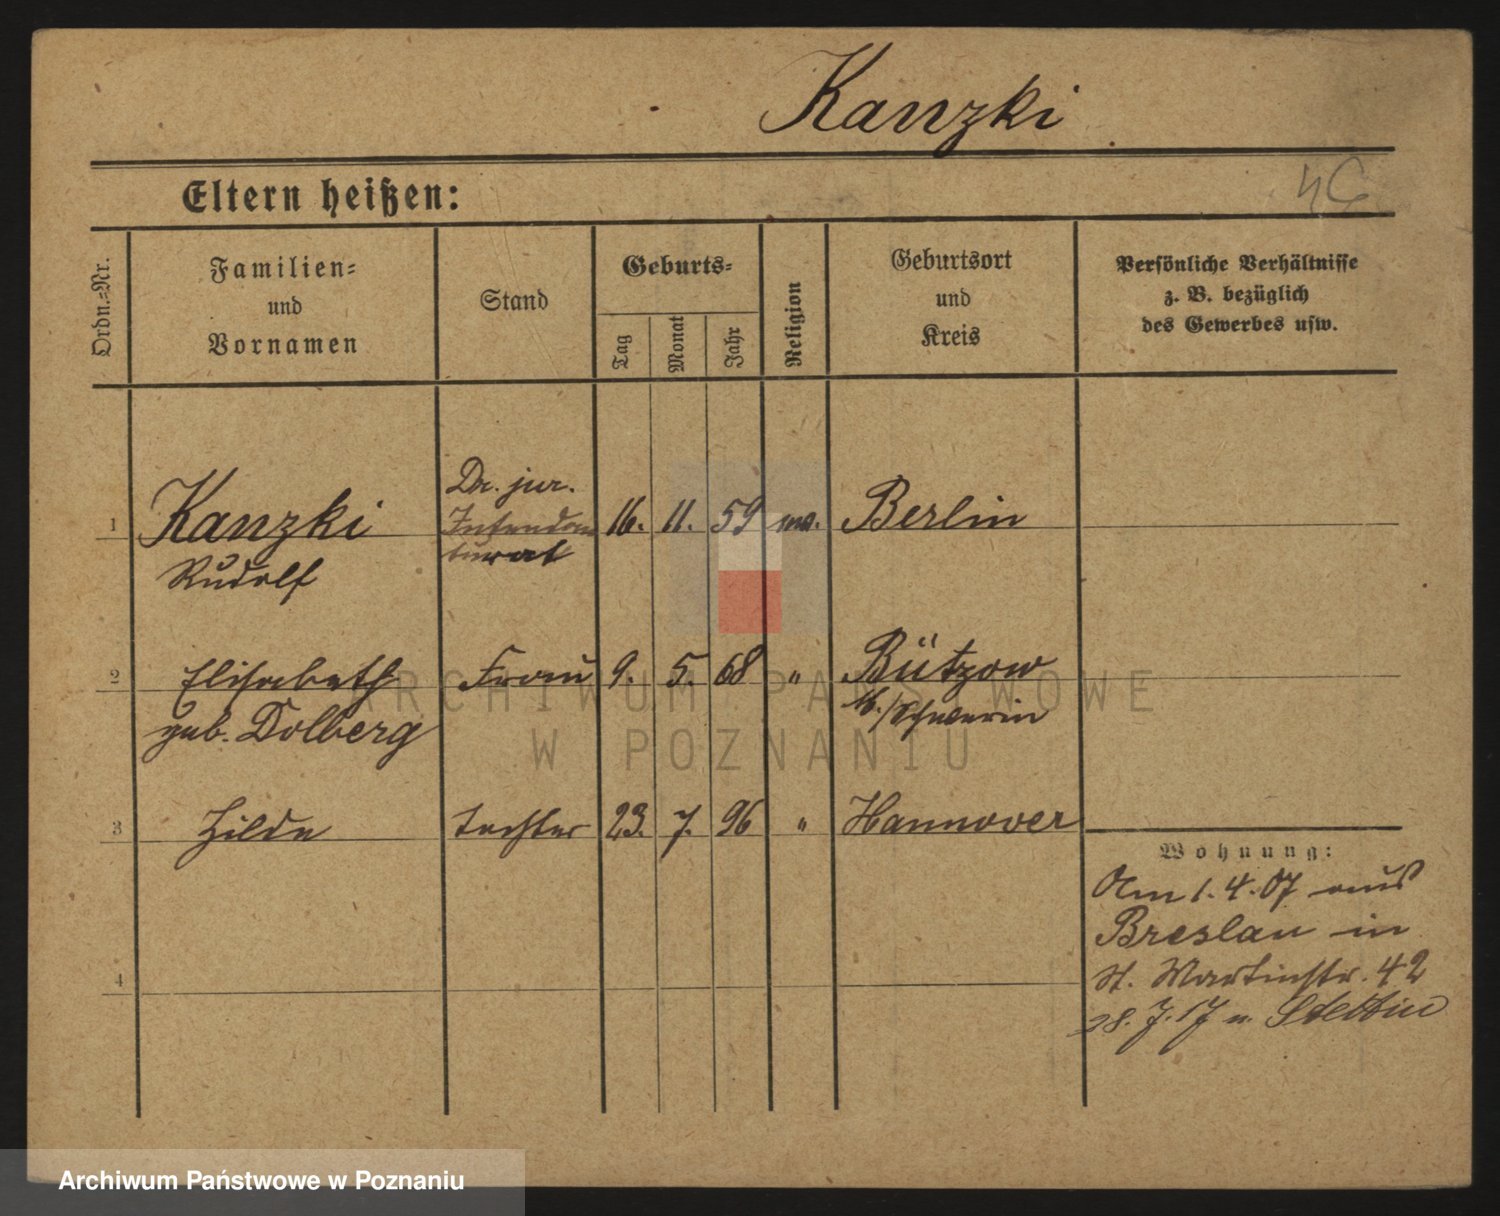 Kanzki
Eltern heißen:
Ordn.=Nr.
Familien=
und
Vornamen
Stand
Geburts=
Tag
Monat
Jahr
Religion
Geburtsort
und
Kreis
Persönliche Verhältnisse
z. B. bezüglich
des Gewerbes usw.
1
Kanzki
Rudolf
Dr. jur.
Intendan
turrat
16. 11. 59
Berlin
2
Elisabeth
geb. Dolberg
Frau
9. 5. 68 "
Bützow
M./Schwerin
3
Hilde
Tochter
23. 7. 96 "
Hannover
4
Wohnung:
Am 1.4.07 aus
Breslau in
St. Martinstr. 42
28.7.17 n. Stettin
ARCHIWUM PAŃSTWOWE
W POZNANIU
Archiwum Państwowe w Poznaniu